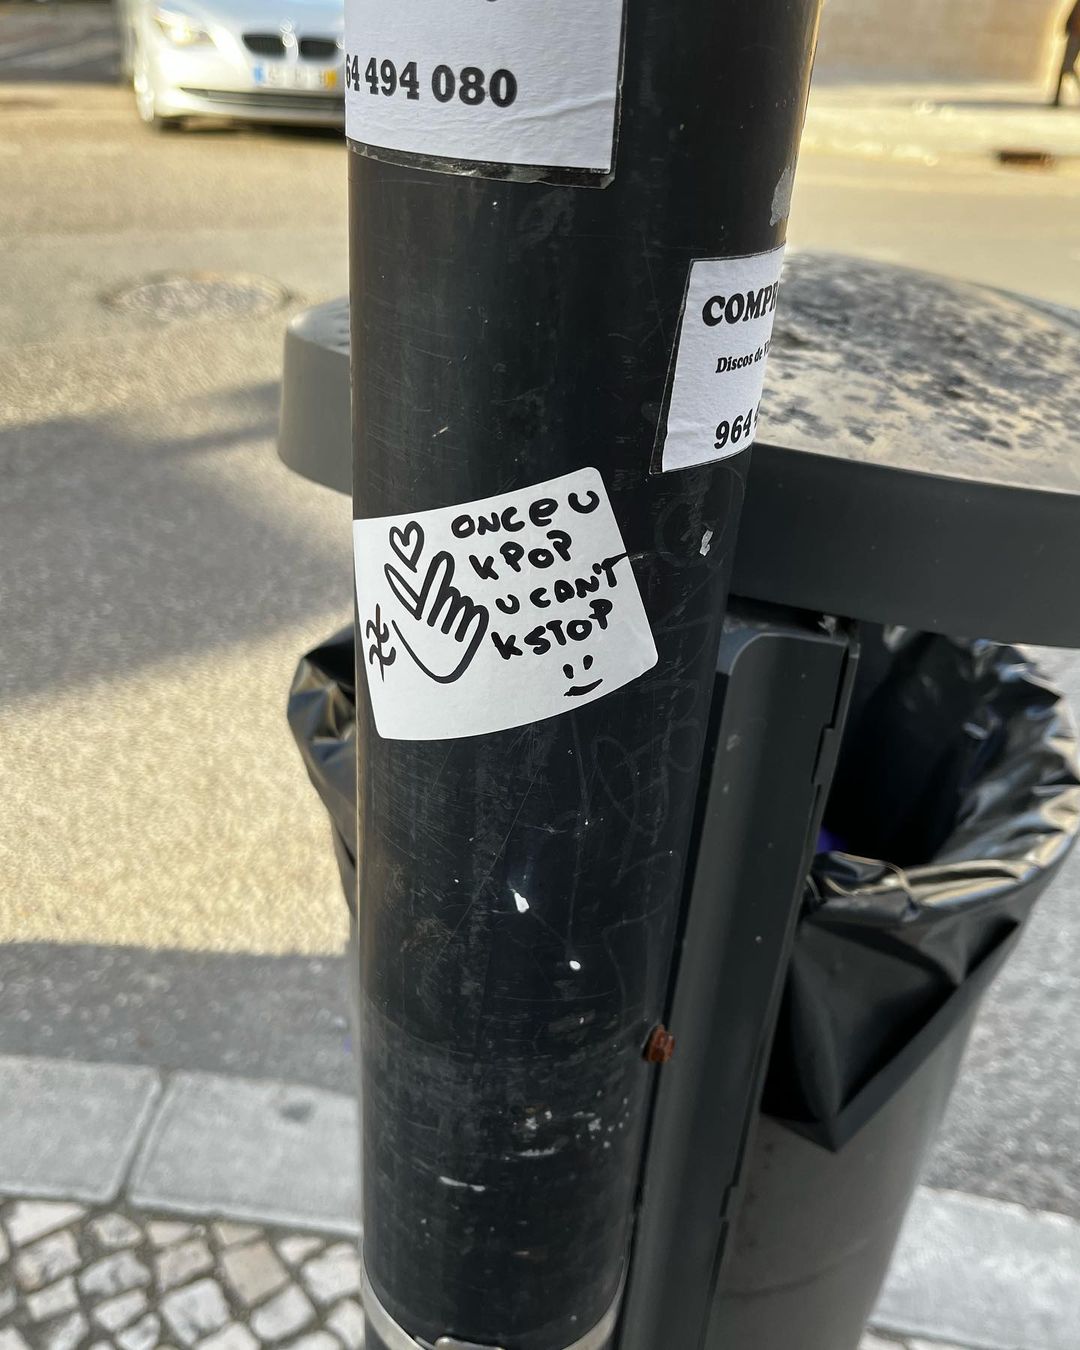 494 080
Discos de
964
ONCE U
KPOP
U CAN'T
KSTOP